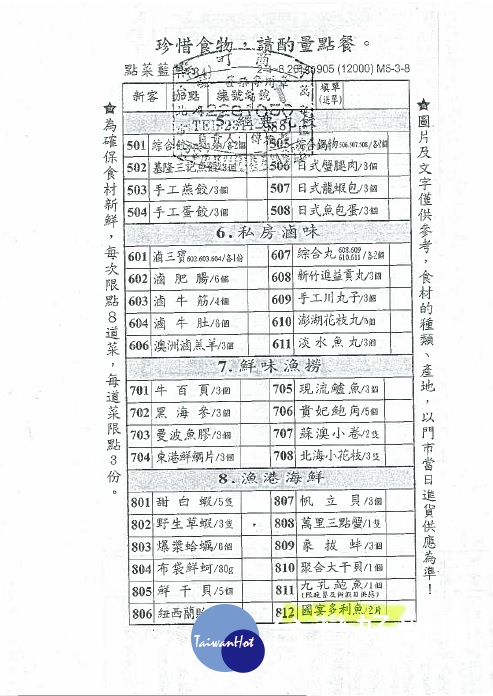 珍惜食物，請酌量點餐。
點菜藍
905 (12000) M5-3-8
新客 加點 編號
填單
(送單)
501 綜合餃
505
502 基隆三記魚餃/3個
506 日式蟹腿肉/3個
503 手工燕餃/3個
507 日式龍蝦包/3個
504 手工蛋餃/3個
508 日式魚包蛋/3個
6.私房滷味
601 滷三寶602.603.604/各1份
607 綜合丸608.609 610.611/各2個
602 滷肥腸/6個
608 新竹進益貢丸/3個
603 滷牛筋/4個
609 手工川丸子/3個
604 滷牛肚/6個
610 澎湖花枝丸/3個
606 澳洲滷羔羊/3個
611 淡水魚丸/3個
7.鮮味漁撈
701 牛百頁/3個
705 現流鱸魚/3個
702 黑海參/3個
706 貴妃鮑角/5個
703 曼波魚膠/3個
707 蘇澳小卷/2隻
704 東港鮮鯛片/3個
708 北海小花枝/3隻
8.漁港海鮮
801 甜白蝦/5隻
807 帆立貝/3個
802 野生草蝦/3隻
808 萬里三點蟹/1隻
803 爆漿蛤蠣/6個
809 象拔蚌/3個
804 布袋鮮蚵/80g
810 聚合大干貝/1個
805 鮮干貝/5個
811 九孔鮑魚/1個
806 紐西蘭
812 國宴多利魚/2片
★為確保食材新鮮，每次限點8道菜，每道菜限點3份。
★圖片及文字僅供參考，食材的種類、產地，以門市當日進貨供應為準！
TaiwanHot